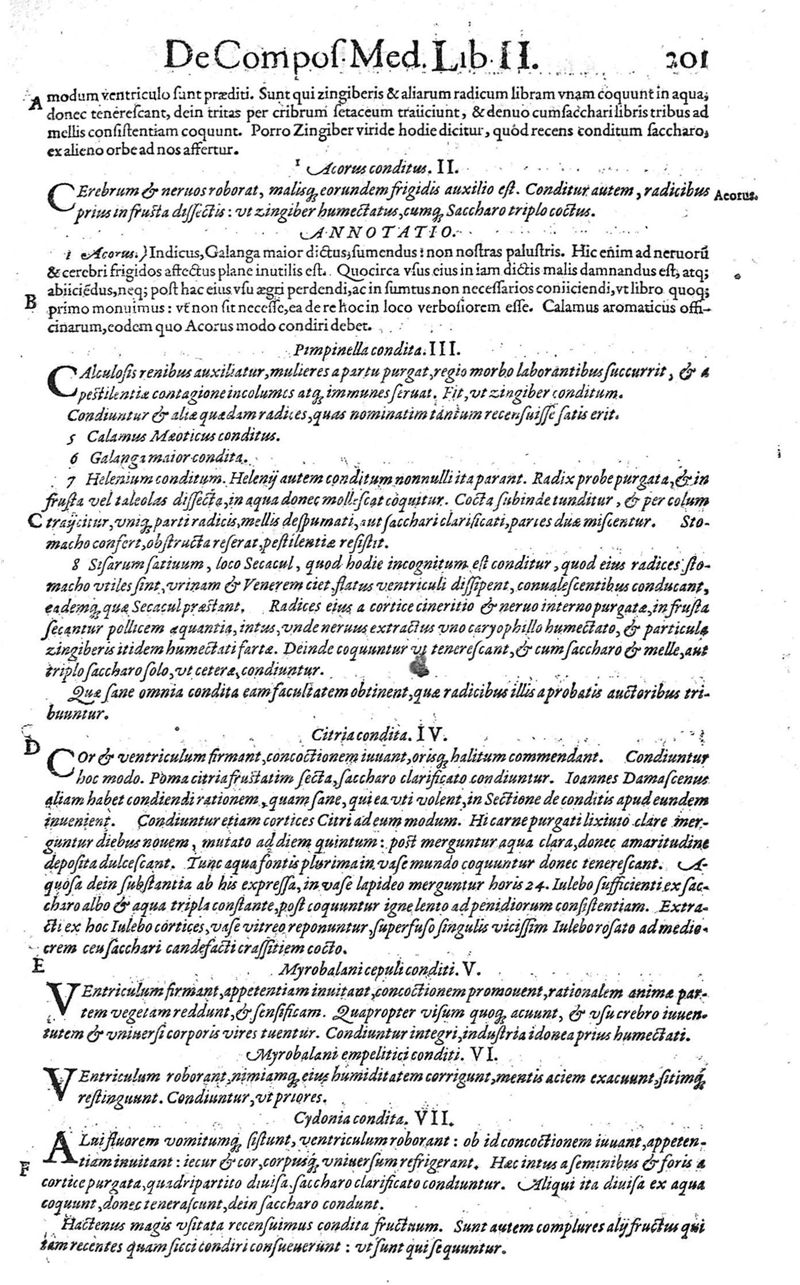 De Compos. Med. Lib. II. 201
A modum ventriculo sunt præditi. Sunt qui zingiberis & aliarum radicum libram vnam coquunt in aqua,
donec tenerescant, dein tritas per cribrum setaceum traiiciunt, & denuo cum sacchari libris tribus ad
mellis consistentiam coquunt. Porro Zingiber viride hodie dicitur, quòd recens conditum saccharo,
ex alieno orbe ad nos affertur.
1 Acorus conditus. II.
CErebrum & neruos roborat, malisq; eorundem frigidis auxilio est. Conditur autem, radicibus Acorus.
prius in frusta dissectis: vt zingiber humectatus, cumq; Saccharo triplo coctus.
ANNOTATIO.
1 Acorus.) Indicus, Galanga maior dictus, sumendus: non nostras palustris. Hic enim ad neruorũ
& cerebri frigidos affectus plane inutilis est. Quocirca vsus eius in iam dictis malis damnandus est, atq;
abiiciẽdus, neq; post hac eius vsu ægri perdendi, ac in sumtus non necessarios coniiciendi, vt libro quoq;
B primo monuimus: vt non sit necesse, ea de re hoc in loco verbosiorem esse. Calamus aromaticus offi-
cinarum, eodem quo Acorus modo condiri debet.
Pimpinella condita. III.
CAlculosis renibus auxiliatur, mulieres a partu purgat, regio morbo laborantibus succurrit, & a
pestilentiæ contagione incolumes atq; immunes seruat. Fit, vt zingiber conditum.
Condiuntur & aliæ quædam radices, quas nominatim tantum recensuisse satis erit.
5 Calamus Mæoticus conditus.
6 Galanga maior condita.
7 Helenium conditum. Helenij autem conditum nonnulli ita parant. Radix probe purgata, & in
frusta vel taleolas dissecta, in aqua donec mollescat coquitur. Cocta subinde tunditur, & per colum
C traijcitur, vniq; parti radicis, mellis despumati, aut sacchari clarificati, partes duæ miscentur. Sto-
macho confert, obstructa reserat, pestilentiæ resistit.
8 Sisarum satiuum, loco Secacul, quod hodie incognitum est conditur, quod eius radices sto-
macho vtiles sint, vrinam & Venerem ciet, flatus ventriculi dissipent, conualescentibus conducant,
eademq; quæ Secacul præstant. Radices eius a cortice cineritio & neruo interno purgatæ, in frusta
secantur pollicem æquantia, intus, vnde neruus extractus vno caryophillo humectato, & particula
zingiberis itidem humectati fartæ. Deinde coquuntur vt tenerescant, & cum saccharo & melle, aut
triplo saccharo solo, vt cetera, condiuntur.
Quæ sane omnia condita eam facultatem obtinent, quæ radicibus illis a probatis auctoribus tri-
buuntur.
Citria condita. IV.
D COr & ventriculum firmant, concoctionem iuuant, orisq; halitum commendant. Condiuntur
hoc modo. Poma citria frustatim secta, saccharo clarificato condiuntur. Ioannes Damascenus
aliam habet condiendi rationem, quam sane, qui ea vti volent, in Sectione de conditis apud eundem
inuenient. Condiuntur etiam cortices Citri ad eum modum. Hi carne purgati lixiuio clare mer-
guntur diebus nouem, mutato ad diem quintum: post merguntur aqua clara, donec amaritudine
deposita dulcescant. Tunc aqua fontis plurima in vase mundo coquuntur donec tenerescant. A-
quosa dein substantia ab his expressa, in vase lapideo merguntur horis 24. Iulebo sufficienti ex sac-
charo albo & aqua tripla constante, post coquuntur igne lento ad penidiorum consistentiam. Extra-
cti ex hoc Iulebo cortices, vase vitreo reponuntur, superfuso singulis vicissim Iulebo rosato ad medio-
crem ceu sacchari candefacti crassitiem cocto.
E Myrobalani cepuli conditi. V.
VEntriculum firmant, appetentiam inuitant, concoctionem promouent, rationalem animæ par-
tem vegetam reddunt, & sensificam. Quapropter visum quoq; acuunt, & vsu crebro iuuen-
tutem & vniuersi corporis vires tuentur. Condiuntur integri, industria idonea prius humectati.
Myrobalani empelitici conditi. VI.
VEntriculum roborant, nimiamq; eius humiditatem corrigunt, mentis aciem exacuunt, sitimq;
restinguunt. Condiuntur, vt priores.
Cydonia condita. VII.
ALui fluorem vomitumq; sistunt, ventriculum roborant: ob id concoctionem iuuant, appeten-
F tiam inuitant: iecur & cor, corpusq; vniuersum refrigerant. Hæc intus a seminibus & foris a
cortice purgata, quadripartito diuisa, saccharo clarificato condiuntur. Aliqui ita diuisa ex aqua
coquunt, donec tenerascunt, dein saccharo condunt.
Hactenus magis vsitata recensuimus condita fructuum. Sunt autem complures alij fructus qui
tam recentes quam sicci condiri consueuerunt: vt sunt qui sequuntur.